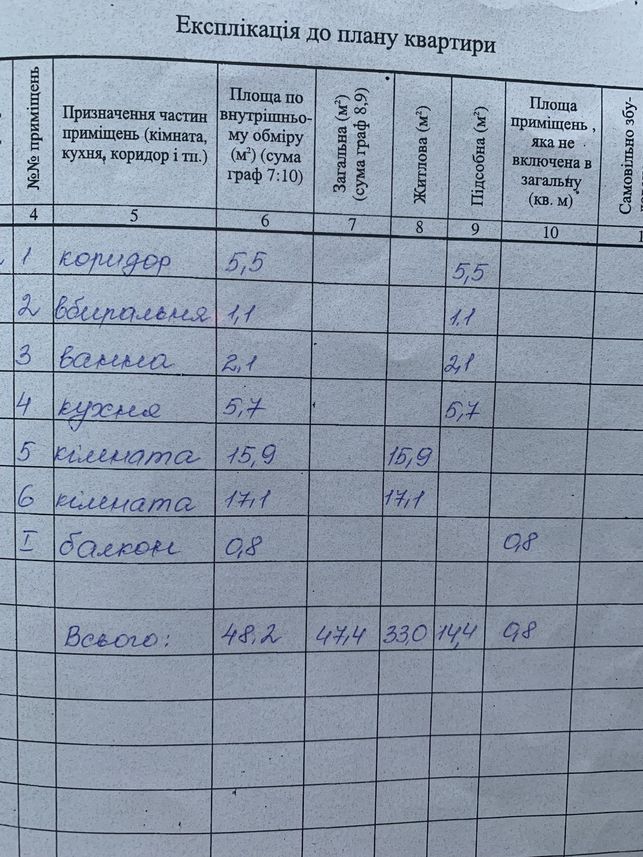 Експлікація до плану квартири
№№ приміщень
Призначення частин
приміщень (кімната,
кухня, коридор і тп.)
Площа по
внутрішньо-
му обміру
(м²) (сума
граф 7:10)
Загальна (м²)
(сума граф 8,9)
Житлова (м²)
Підсобна (м²)
Площа
приміщень ,
яка не
включена в
загальну
(кв. м)
Самовільно збу-
4 5 6 7 8 9 10
1 коридор 5,5 5,5
2 вбиральня 1,1 1,1
3 ванна 2,1 2,1
4 кухня 5,7 5,7
5 кімната 15,9 15,9
6 кімната 17,1 17,1
I балкон 0,8 0,8
Всього: 48,2 47,4 33,0 14,4 0,8